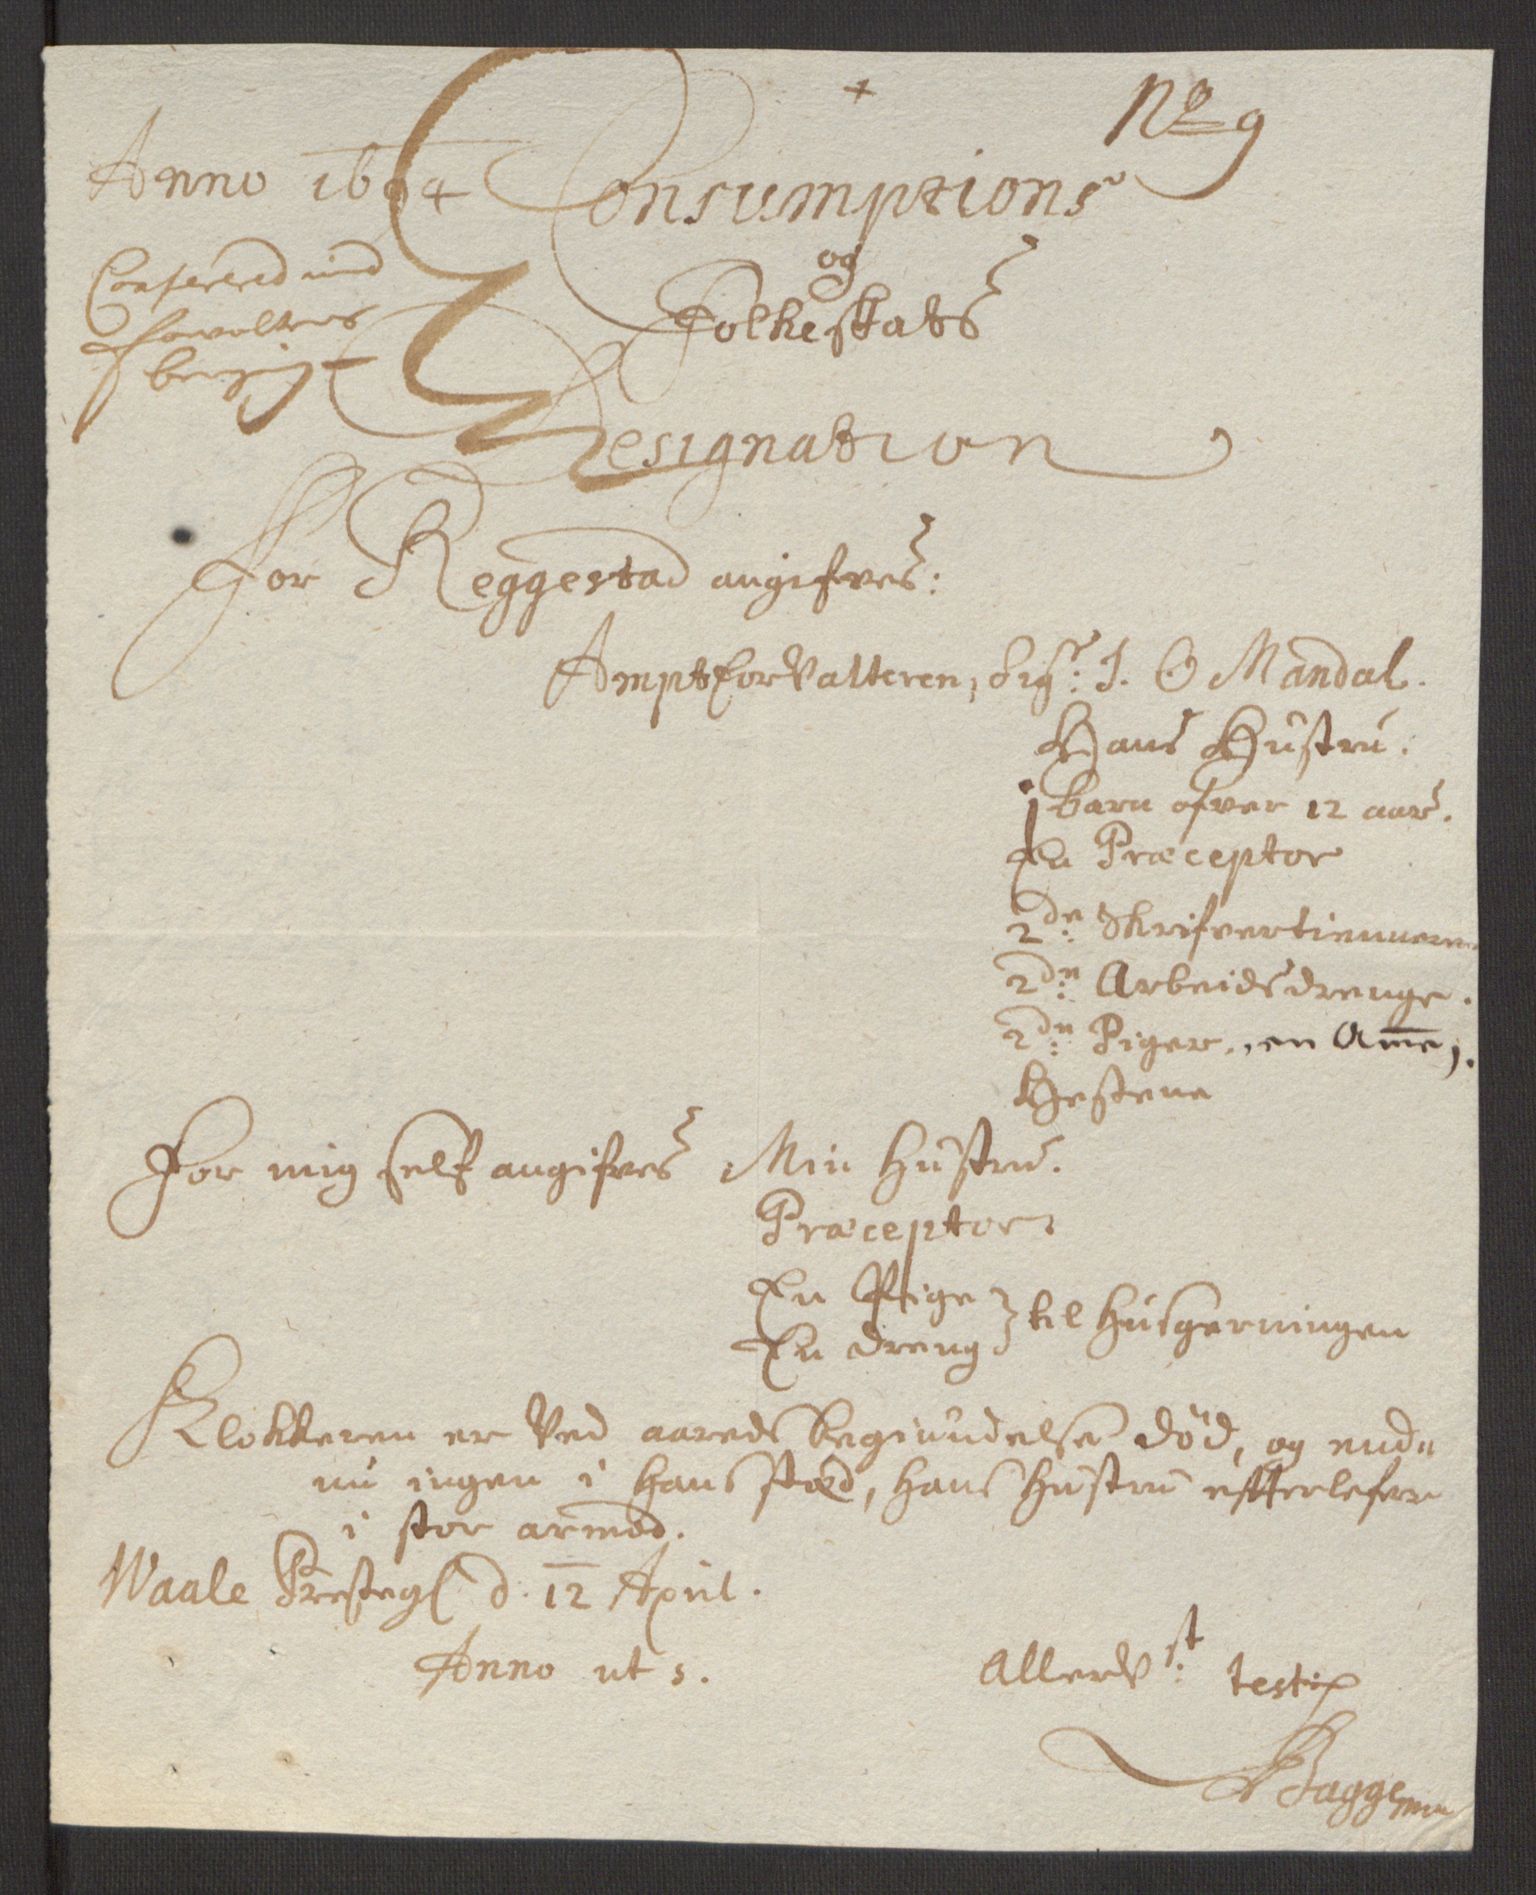 No 9
Anno 1694 Consumptions
og
Folkeskats
Designation
Confererid med
forvalters
For Reggestad angifves:
Amptsforvalteren, Sigr: I. O Mandal.
Hans Hustru.
1 barn ofver 12 aar.
En Præceptor
2de: Skrifvertiennere
2de: Arbeids drenge.
2de: Piger, en Ame 1.
Hestene
For mig self angifves Min Hustru.
Præceptor
En Pige
En dreng } til Husgerningen
Klokkeren er Ved aareds begiundelse død, og end=
nu ingen i hans stæd, hans Hustru efterlefver
i stor armod.
Waale Presteg d. 12 April.
Anno ut s.
Allerv st: testis
Bagge mm